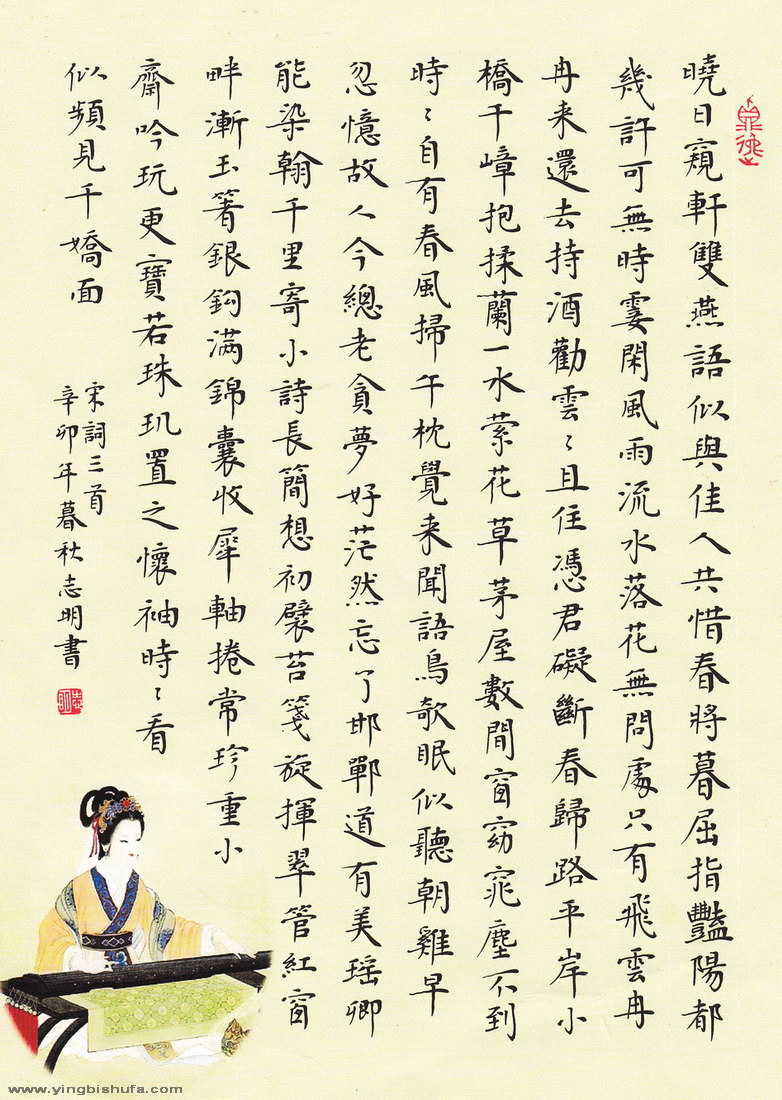 曉日窺軒雙燕語似與佳人共惜春將暮屈指豔陽都
幾許可無時霎閑風雨流水落花無問處只有飛雲冉
冉来還去持酒勸雲〻且住憑君礙斷春歸路平岸小
橋千嶂抱揉蘭一水萦花草茅屋數間窗窈窕塵不到
時〻自有春風掃午枕覺来聞語鳥欹眠似聽朝雞早
忽憶故人今總老貪夢好茫然忘了邯鄲道有美瑶卿
能染翰千里寄小詩長簡想初襞苔箋旋揮翠管紅窗
畔漸玉箸銀鈎满錦囊收犀軸捲常珍重小
齋吟玩更寶若珠玑置之懷袖時〻看
似頻見千嬌面
宋詞三首
辛卯年暮秋志明書
志明
www.yingbishufa.com